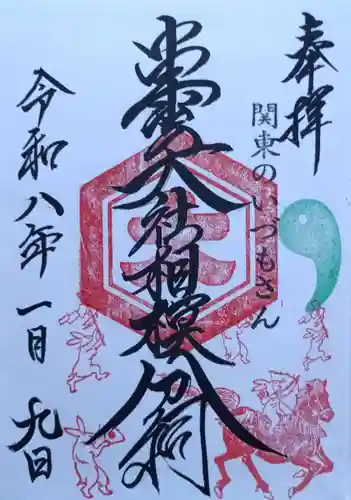 奉拝
関東のいづもさん
出雲大社相模分祠
令和八年一月九日